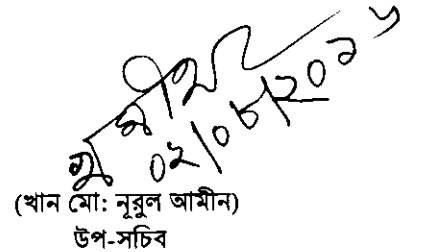 ০২/০৮/২০১৬
(খান মো: নূরুল আমীন)
উপ-সচিব